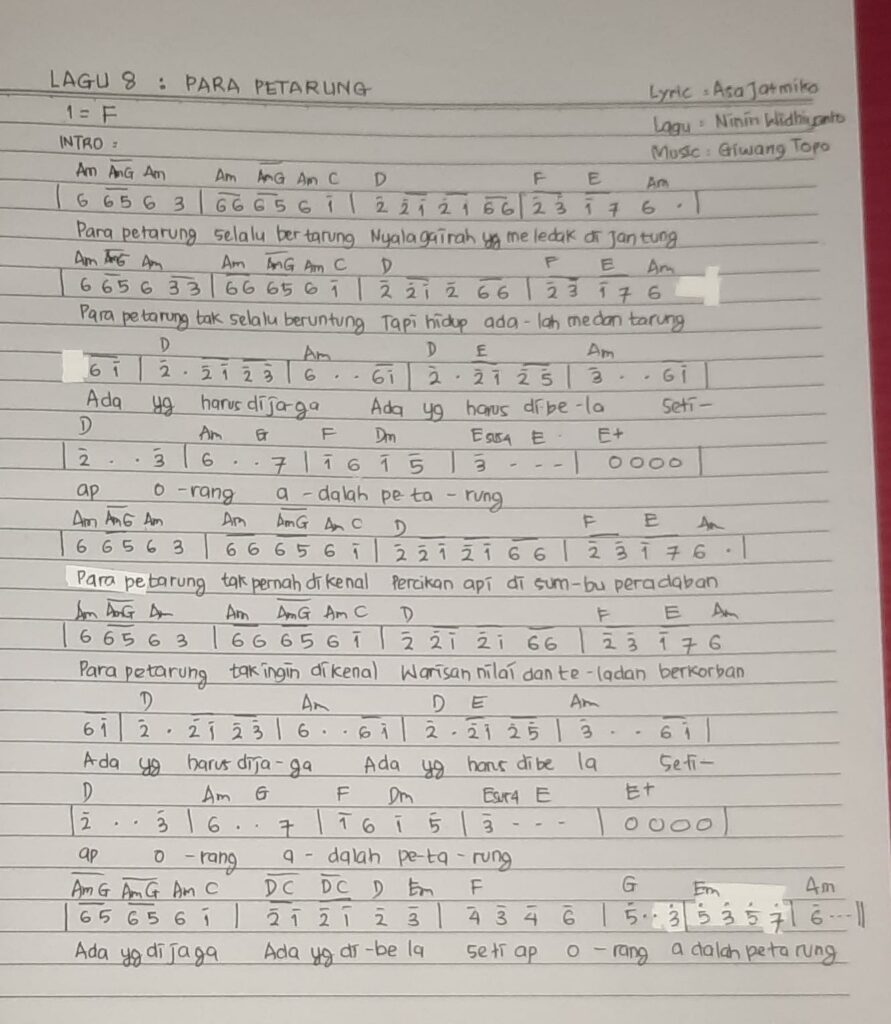 LAGU 8 : PARA PETARUNG
Lyric : Asa Jatmiko
1 = F
Lagu : Ninin Widhiyanto
INTRO :
Music : Giwang Topo
Am AmG Am Am AmG Am C D F E Am
| 6 65 6 3 | 66 65 6 1 | 2 21 21 66 | 2 3 1 7 6 . |
Para petarung selalu bertarung Nyala gairah yg meledak di jantung
Am AmG Am Am AmG Am C D F E Am
| 6 65 6 33 | 66 65 6 1 | 2 21 2 66 | 23 17 6
Para petarung tak selalu beruntung Tapi hidup ada-lah medan tarung
D Am D E Am
61 | 2 . 21 23 | 6 . . 61 | 2 . 21 25 | 3 . . 61 |
Ada yg harus dija-ga Ada yg harus dibe-la Seti-
D Am G F Dm Esus4 E E+
| 2 . . 3 | 6 . . 7 | 1 6 1 5 | 3 - - - | 0000 |
ap o-rang a-dalah pe-ta-rung
Am AmG Am Am AmG Am C D F E Am
| 6 65 6 3 | 66 65 6 1 | 2 21 21 66 | 2 3 1 7 6 . |
Para petarung tak pernah dikenal Percikan api di sum-bu peradaban
Am AmG Am Am AmG Am C D F E Am
| 6 65 6 3 | 66 65 6 1 | 2 21 21 66 | 2 3 1 7 6
Para petarung tak ingin dikenal Warisan nilai dan te-ladan berkorban
D Am D E Am
61 | 2 . 21 23 | 6 . . 61 | 2 . 21 25 | 3 . . 61 |
Ada yg harus dija-ga Ada yg harus dibe la Seti-
D Am G F Dm Esus4 E E+
| 2 . . 3 | 6 . . 7 | 1 6 1 5 | 3 - - - | 0000 |
ap o-rang a-dalah pe-ta-rung
AmG AmG Am C DC DC D Em F G Em Am
| 65 65 6 1 | 21 21 2 3 | 4 3 4 6 | 5 . . 3 | 5 3 5 7 | 6 - - - ||
Ada yg dijaga Ada yg di-be la seti ap o-rang adalah petarung